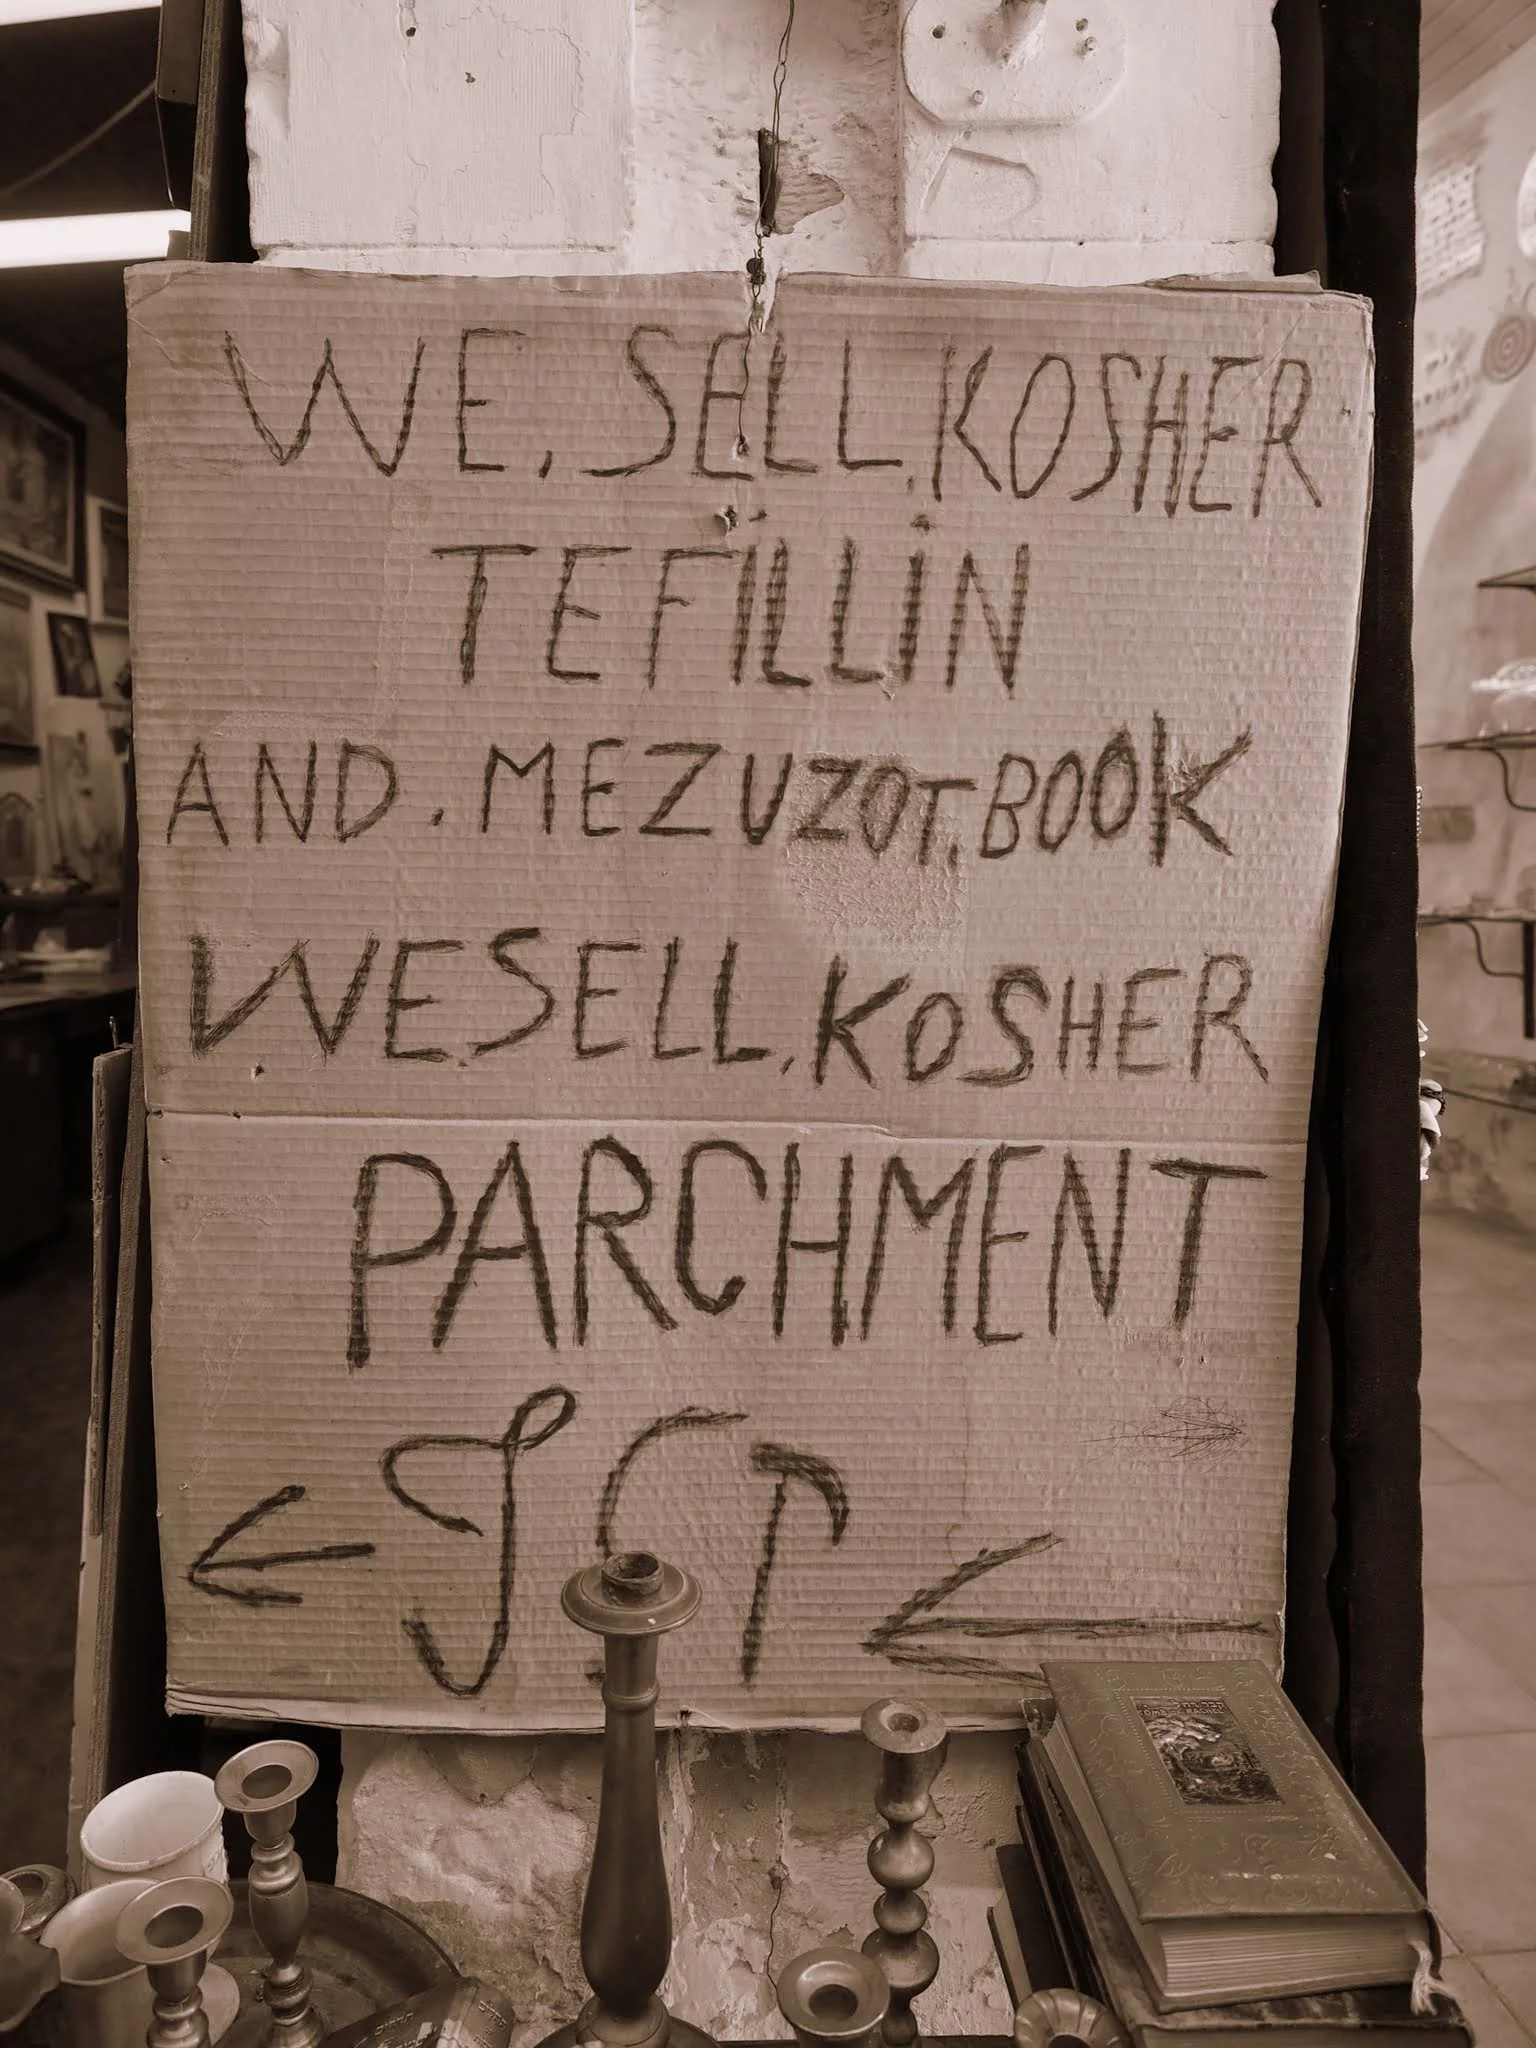 WE, SELL, KOSHER
TEFiLLiN
AND. MEZUZOT, BOOK
WE SELL, KOSHER
PARCHMENT